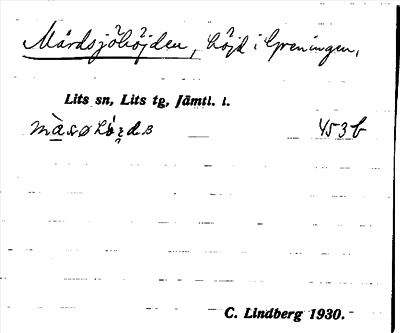 Mårdsjöhöjden, höjd i Greningen,
Lits sn, Lits tg, Jämtl. l.
453b
C. Lindberg 1930.